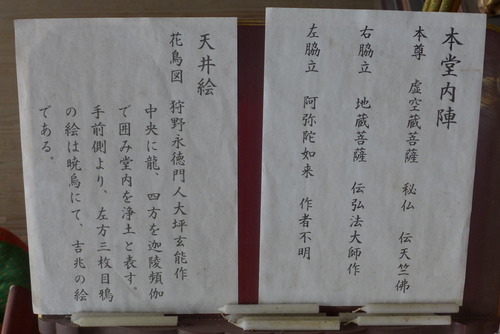 本堂内陣
本尊　虚空蔵菩薩　秘仏　伝天竺佛
右脇立　地蔵菩薩　伝弘法大師作
左脇立　阿弥陀如来　作者不明
天井絵
花鳥図　狩野永徳門人大坪玄能作
中央に龍、四方を迦陵頻伽
で囲み堂内を浄土と表す。
手前側より、左方三枚目鴉
の絵は暁烏にて、吉兆の絵
である。